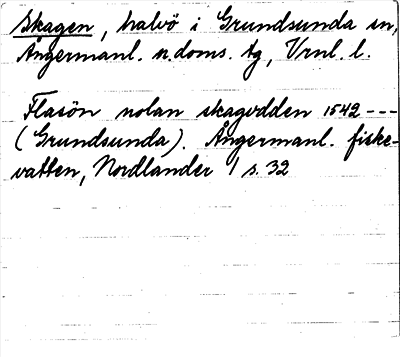 Skagen, halvö i Grundsunda sn,
Ångermanl. n. doms. tg, Vrnl. l.
Flasön nolan skagodden 1542 ---
(Grundsunda). Ångermanl. fiske-
vatten, Nordlander 1 s. 32